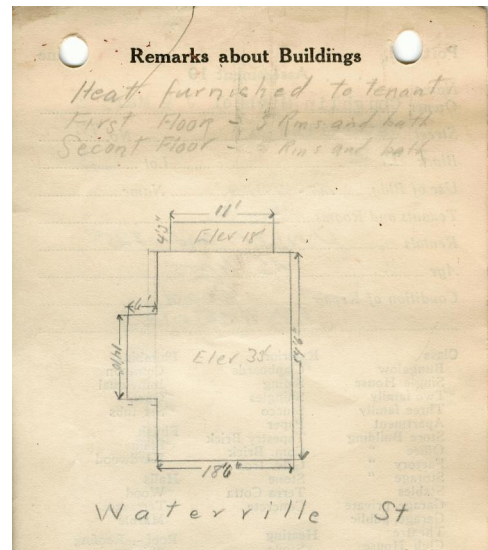 Remarks about Buildings
Heat furnished to tenant
First Floor - 5 Rms and bath
Secont Floor - Rms and bath
11'
4'3"
Elev 18'
4'
14'10"
Elev 33'
18'6"
Waterville St